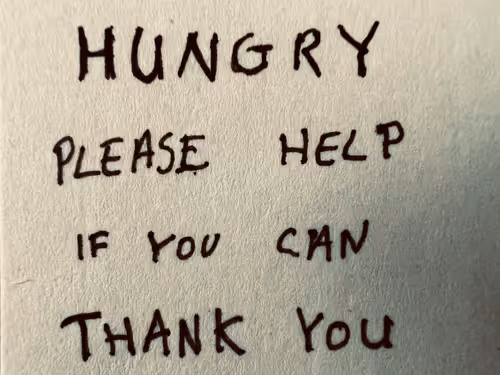 HUNGRY
PLEASE HELP
IF YOU CAN
THANK YOU